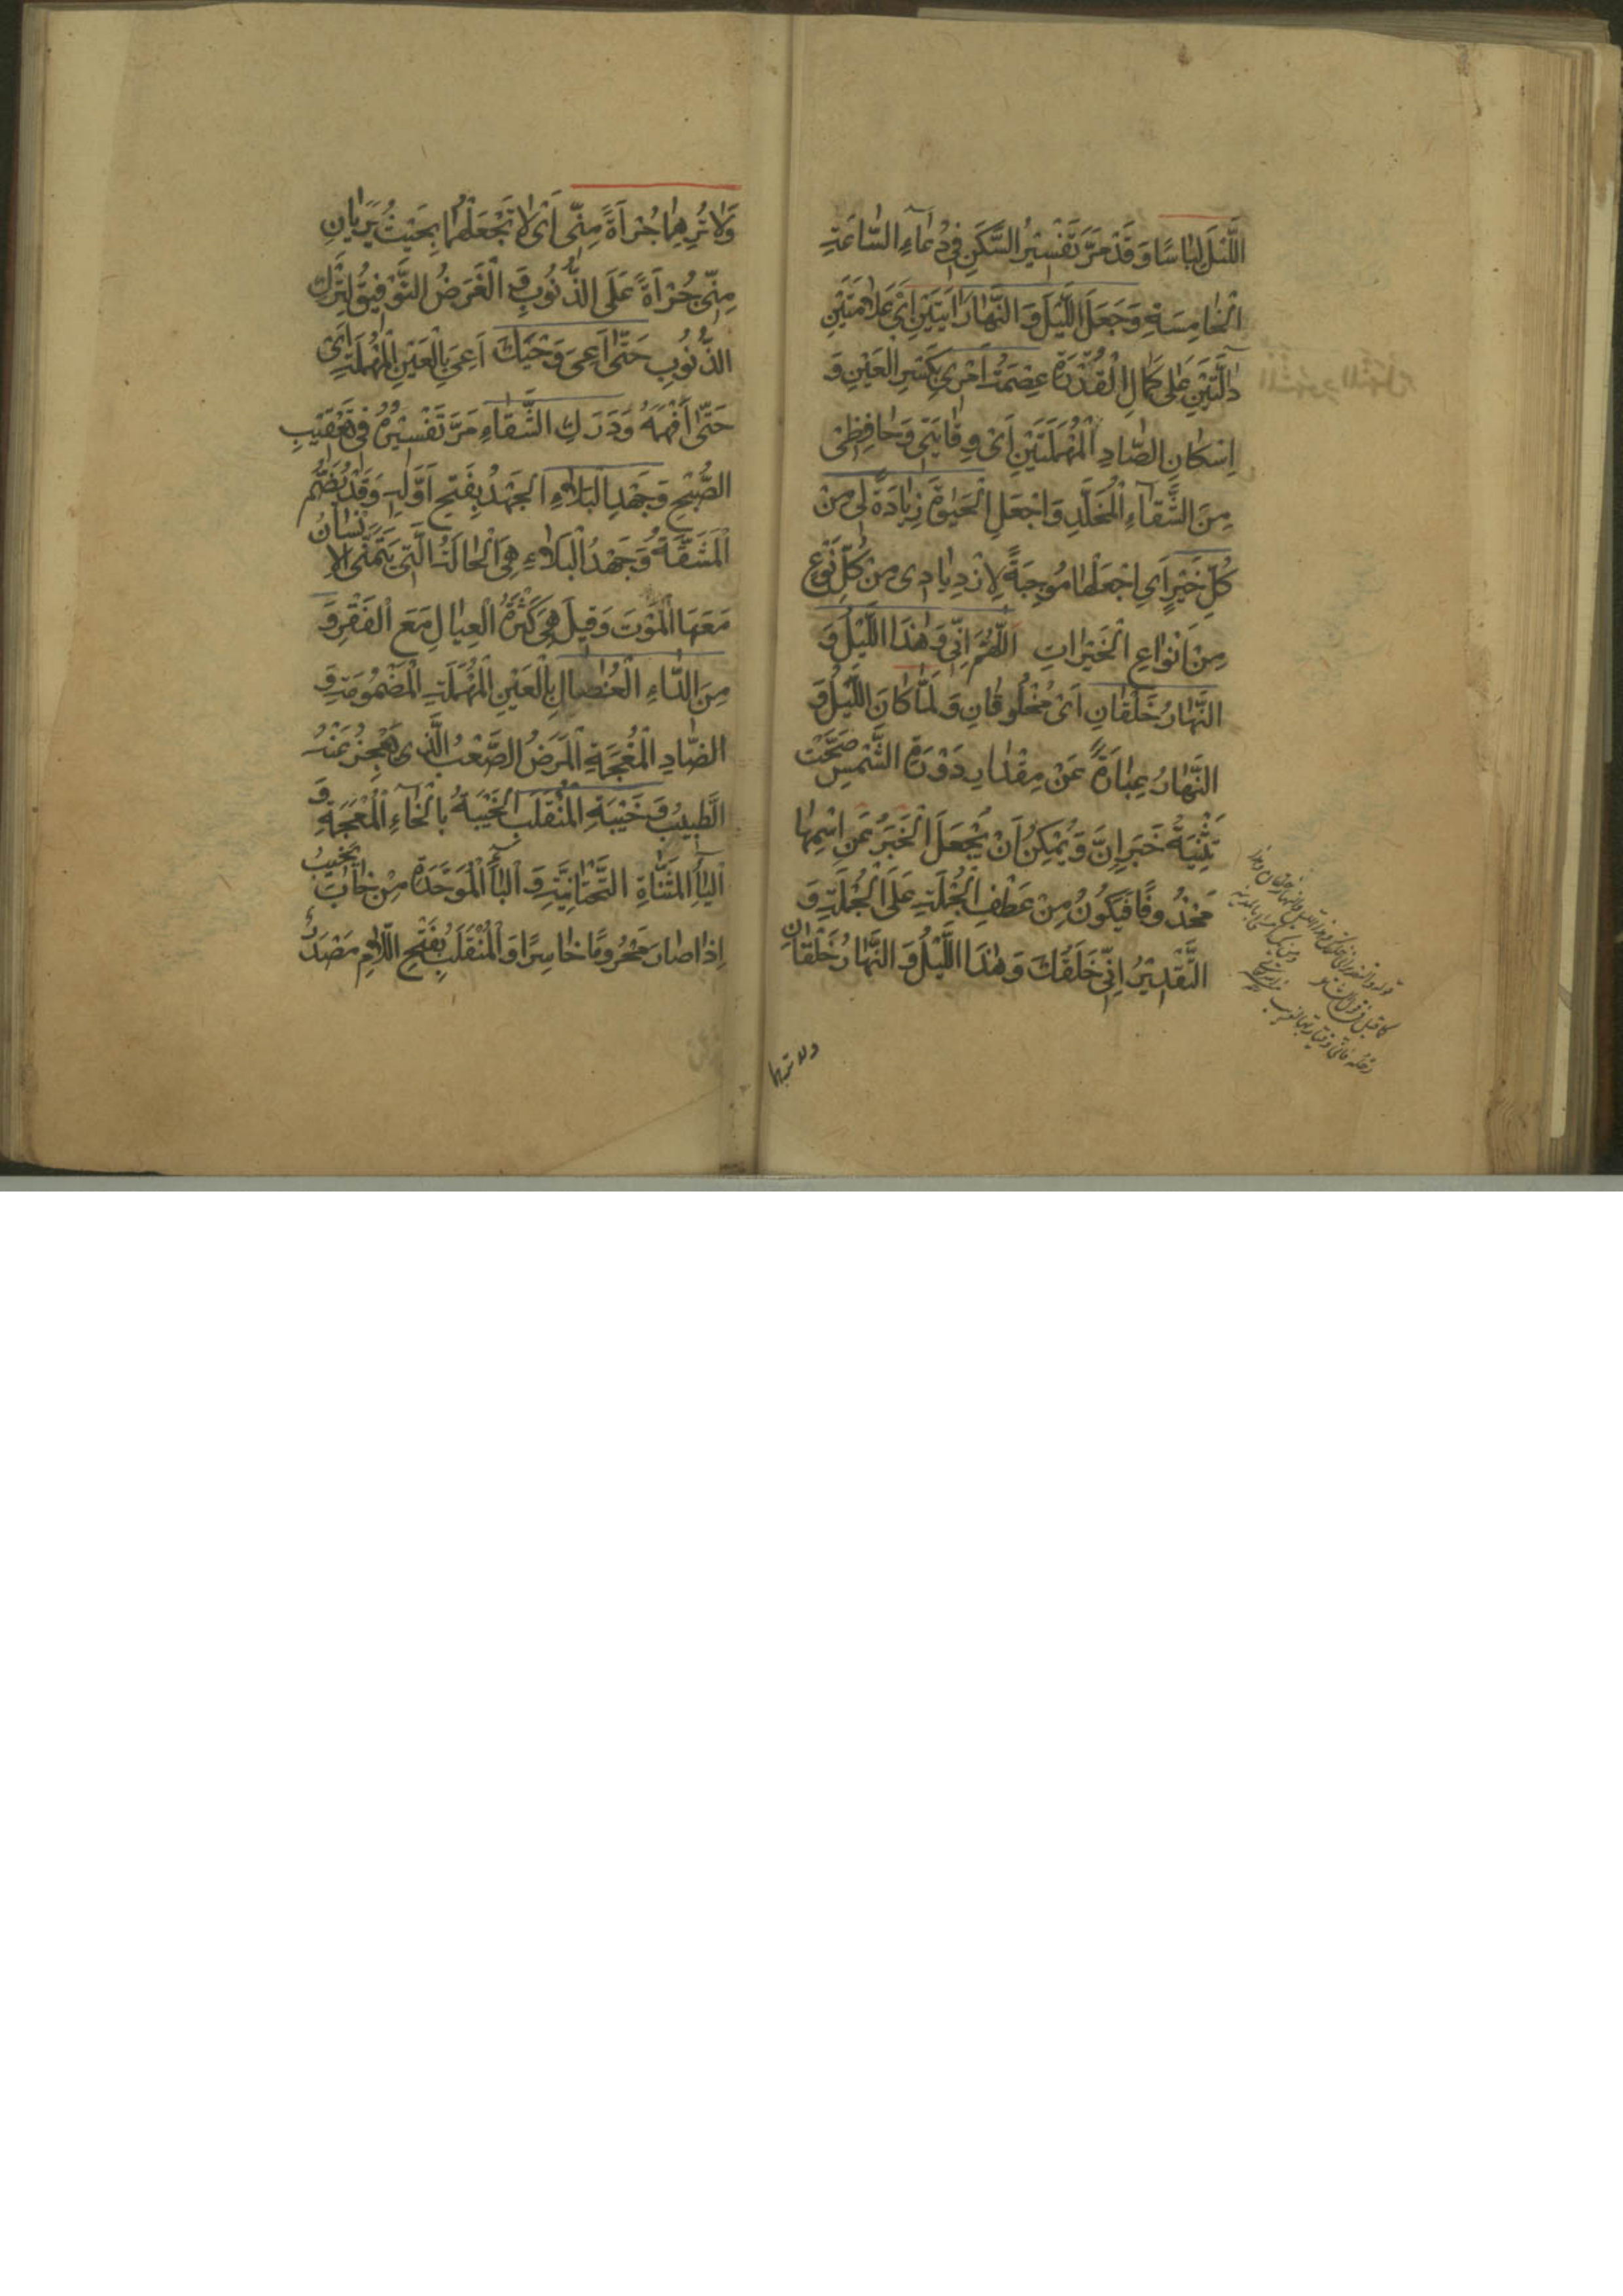 اللَّيْلَ لِبَاسًا وَقَدْ مَرَّ تَفْسِيْرُ السَّكَنِ فِي دُعَآءِ السَّاعَةِ
الْخَامِسَةِ وَجَعَلَ اللَّيْلَ وَ النَّهَارَ اٰيَتَيْنِ اَيْ عَلَامَتَيْنِ
دَالَّتَيْنِ عَلٰى كَمَالِ الْقُدْرَةِ عِصْمَةُ اَمْرِي بِكَسْرِ الْعَيْنِ وَ
اِسْكَانِ الصَّادِ الْمُهْمَلَتَيْنِ اَيْ وِقَايَتِي وَحَافِظِي
مِنَ الشَّقَآءِ الْمُخَلَّدِ وَاجْعَلِ الْحَيٰوةَ زِيَادَةً لِي مِنْ
كُلِّ خَيْرٍ اَيِ اجْعَلْهَا مُوجِبَةً لِازْدِيَادِي مِنْ كُلِّ نَوْعٍ
مِنْ اَنْوَاعِ الْخَيْرَاتِ اللّٰهُمَّ اِنِّي وَ هٰذَا اللَّيْلُ وَ
النَّهَارُ خَلْقَانِ اَيْ مَخْلُوقَانِ وَ لَمَّا كَانَ اللَّيْلُ وَ
النَّهَارُ عِبَارَةً عَنْ مِقْدَارِ دَوْرَةِ الشَّمْسِ صَحَّتْ
تَثْنِيَةُ خَبَرِ اِنَّ وَ يُمْكِنُ اَنْ يُجْعَلَ الْخَبَرُ عَنِ اسْمِهَا
مَحْذُوفًا فَيَكُونُ مِنْ عَطْفِ الْجُمْلَةِ عَلَى الْجُمْلَةِ وَ
التَّقْدِيْرُ اِنِّي خَلَقُكَ وَ هٰذَا اللَّيْلُ وَ النَّهَارُ خَلْقَانِ
وَلَا تُرِهِمَا جُرْأَةً مِنِّي اَيْ لَا تَجْعَلْهُمَا بِحَيْثُ يَرَيَانِ
مِنِّي جُرْأَةً عَلَى الذُّنُوبِ وَ الْغَرَضُ التَّوْفِيْقُ لِتَرْكِ
الذُّنُوبِ حَتّٰى اَعِيَ وَحْيَكَ اَعِيَ بِالْعَيْنِ الْمُهْمَلَةِ اَيْ
حَتّٰى اَفْهَمَهُ وَ دَرَكِ الشَّقَاءِ مَرَّ تَفْسِيْرُهُ فِي تَعْقِيْبِ
الصُّبْحِ وَ جَهْدِ الْبَلَاءِ الْجَهْدُ بِفَتْحِ اَوَّلِهِ وَقَدْ يُضَمُّ
الْمَشَقَّةُ وَ جَهْدُ الْبَلَاءِ هِيَ الْحَالَةُ الَّتِي يَتَمَنَّى الْاِنْسَانُ
مَعَهَا الْمَوْتَ وَ قِيلَ هِيَ كَثْرَةُ الْعِيَالِ مَعَ الْفَقْرِ وَ
مِنَ الدَّاءِ الْعُضَالِ بِالْعَيْنِ الْمُهْمَلَةِ الْمَضْمُومَةِ وَ
الضَّادِ الْمُعْجَمَةِ الْمَرَضُ الصَّعْبُ الَّذِي يَعْجِزُ عَنْهُ
الطَّبِيبُ وَ خَيْبَةِ الْمُنْقَلَبِ الْخَيْبَةُ بِالْخَاءِ الْمُعْجَمَةِ وَ
الْيَآءِ الْمُثَنَّاةِ التَّحْتَانِيَّةِ وَ الْبَآءِ الْمُوَحَّدَةِ مِنْ خَابَ يَخِيْبُ
اِذَا صَارَ مَحْرُومًا خَاسِرًا وَ الْمُنْقَلَبُ بِفَتْحِ اللَّامِ مَصْدَرٌ